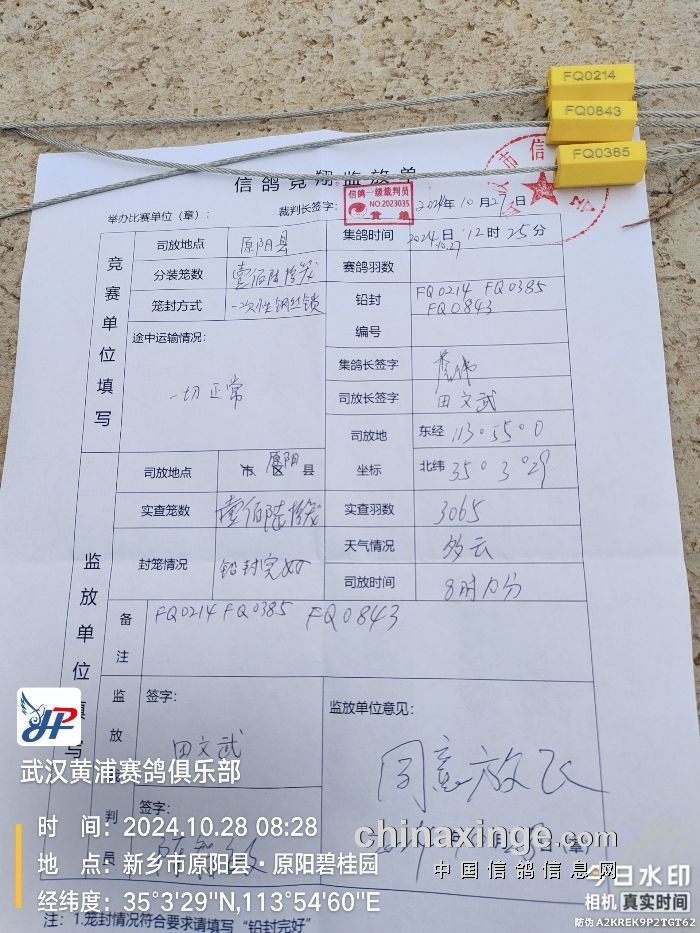 FQ0214
FQ0843
FQ0385
信鸽竞翔监放单
信鸽一级裁判员
NO:2023035
举办比赛单位（章）：
裁判长签字：
2024年10月27日
竞赛单位填写
司放地点 原阳县
集鸽时间 2024日12时25分
10.27
分装笼数 壹佰陆拾笼
赛鸽羽数
笼封方式 一次性钢丝锁
铅封 FQ0214 FQ0385
FQ0843
编号
途中运输情况：
一切正常
集鸽长签字
司放长签字 田文武
司放地
坐标
东经 113°55°0
北纬 35°3°29
监放单位填写
司放地点 原阳
市 区 县
实查笼数 壹佰陆拾笼
实查羽数 3065
封笼情况 铅封完好
天气情况 多云
司放时间
备注
FQ0214 FQ0385 FQ0843
监放裁判长
签字：
田文武
签字：
监放单位意见：
同意放飞
(章)
武汉黄浦赛鸽俱乐部
时 间：2024.10.28 08:28
地 点：新乡市原阳县·原阳碧桂园
经纬度：35°3'29"N,113°54'60"E
注：1.笼封情况符合要求请填写“铅封完好”
chinaxinge.com
中国信鸽信息网
今日水印
相机 真实时间
防伪 A2KREK9P2TGT62